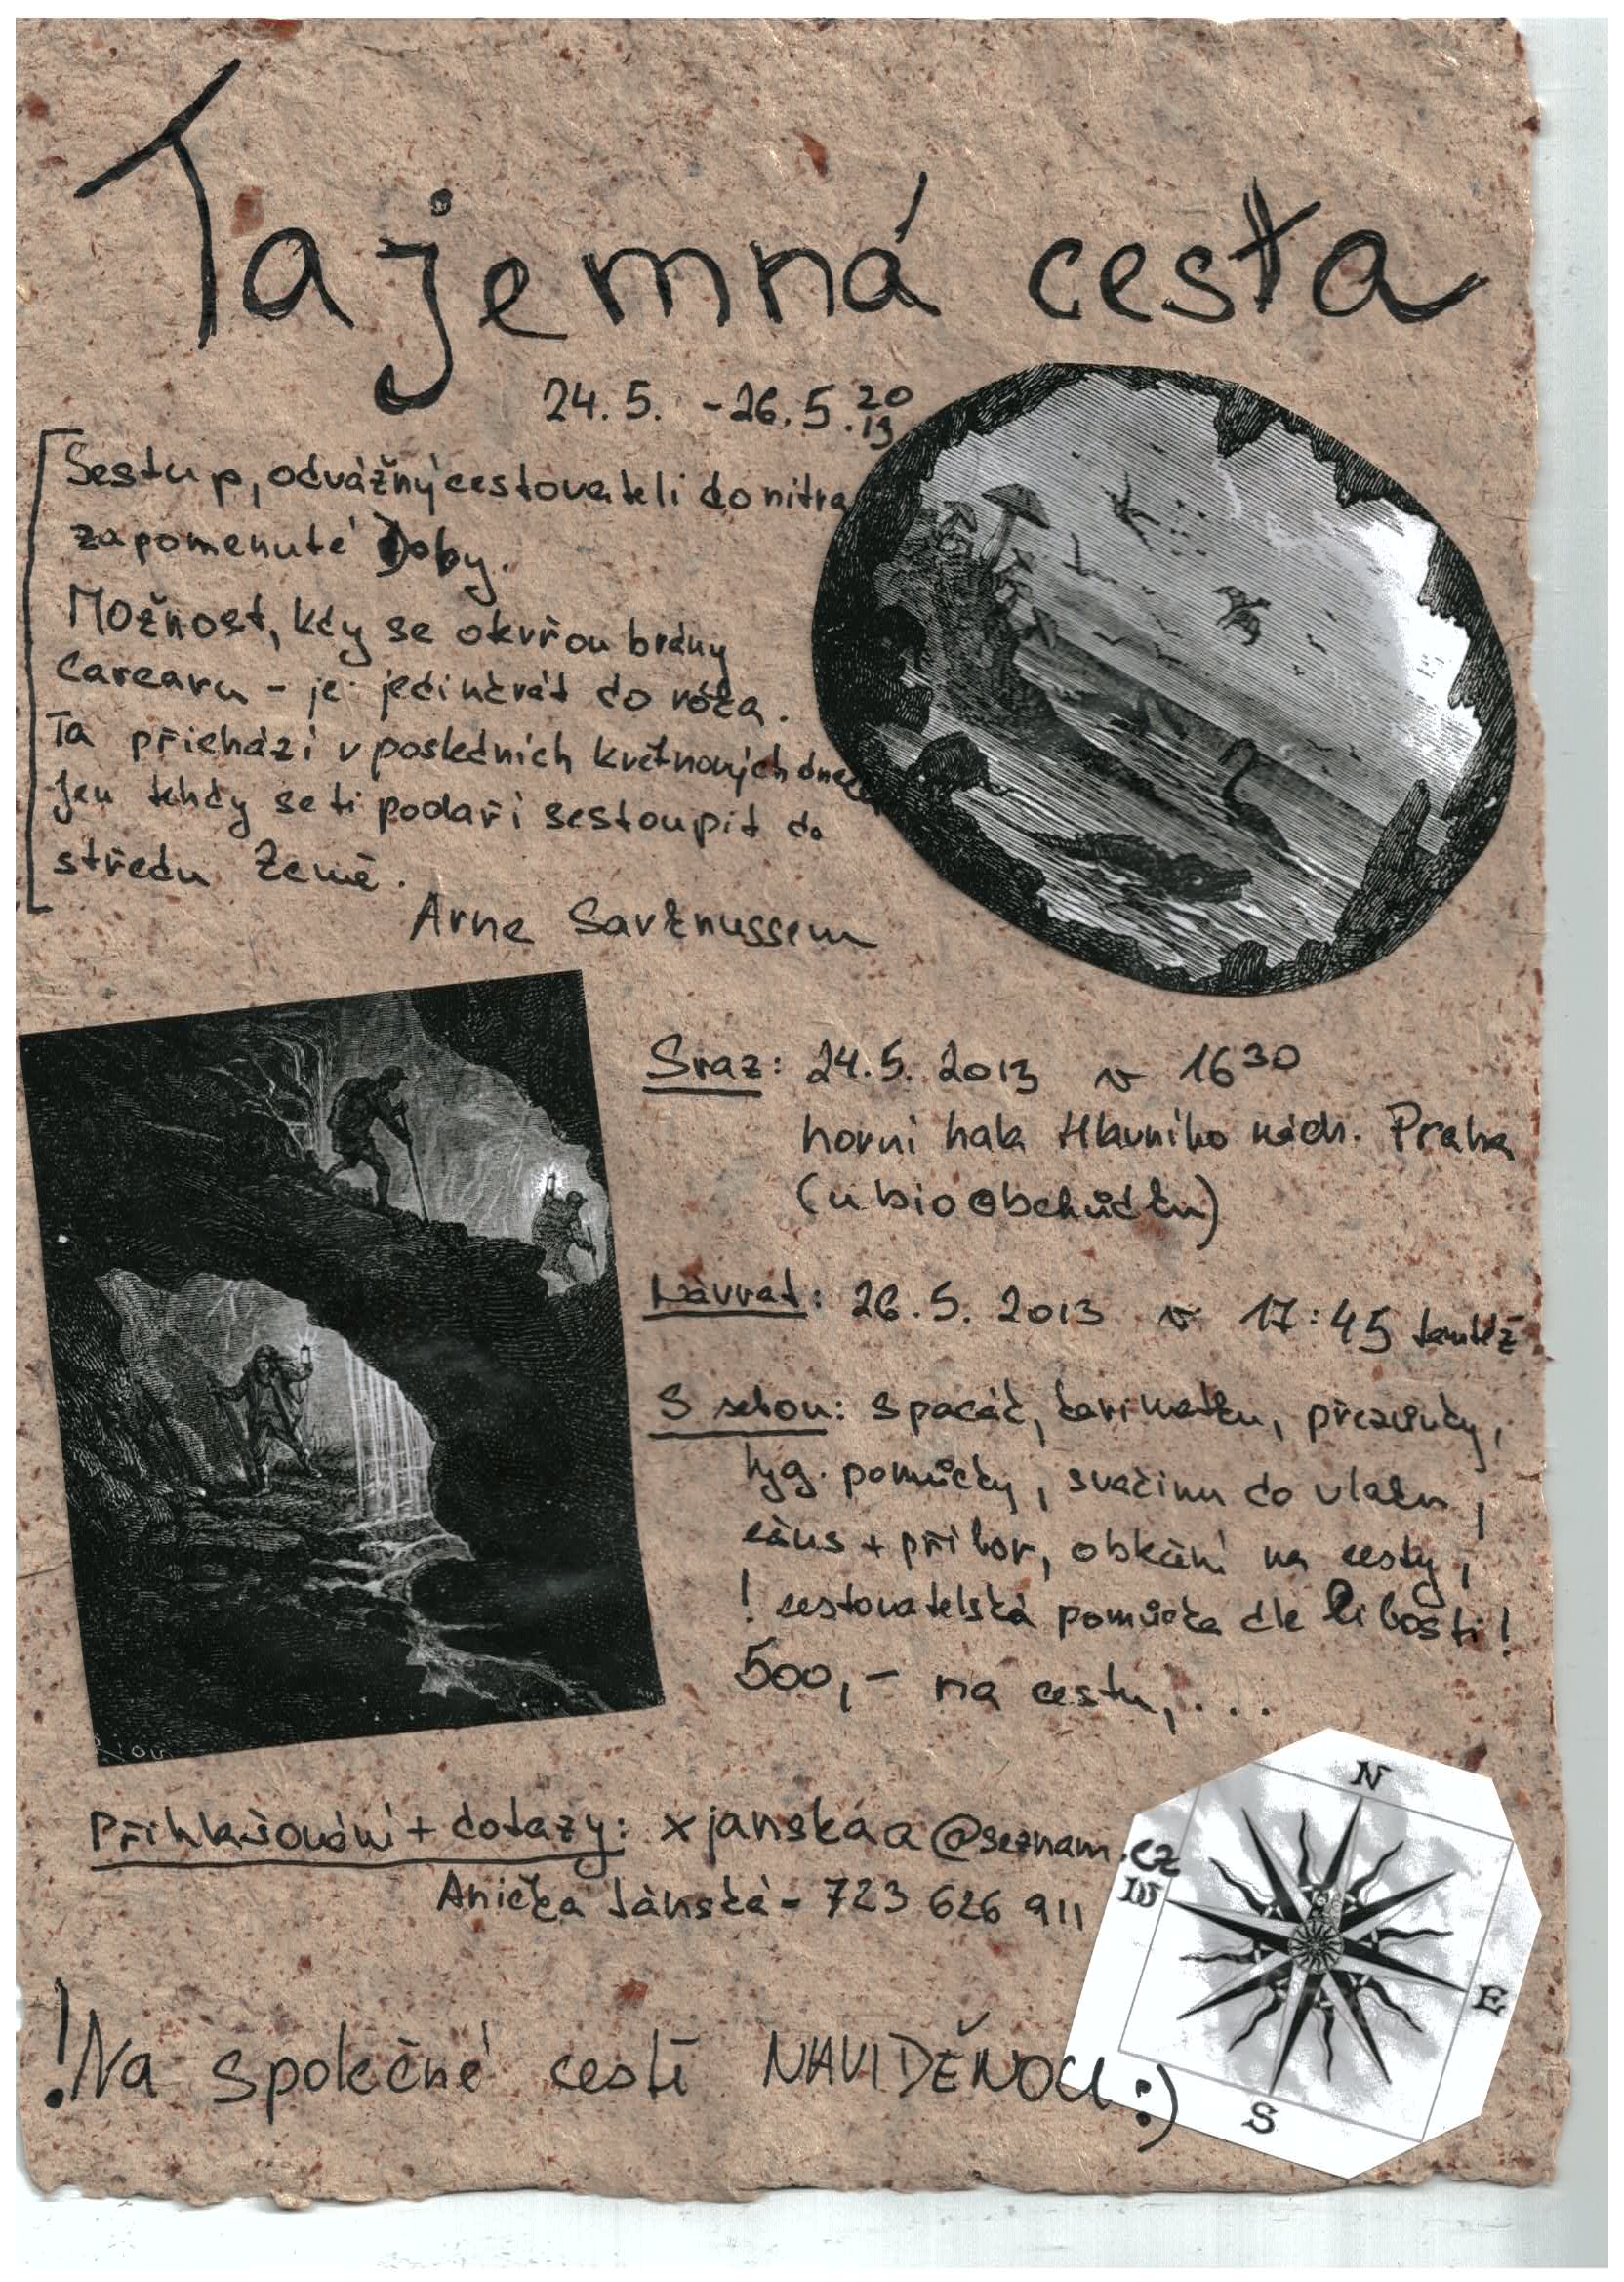 Tajemná cesta
24.5. - 26.5. 2013
Sestup, odvážný cestovateli do nitra
zapomenuté Doby.
Možnost, kdy se otevřou brány
- je jedinkrát do roka.
Ta přichází v posledních květnových dnech
jen tehdy se ti podaří sestoupit do
středu Země.
Arne Sarknussem
Sraz: 24.5. 2013 v 16 30
horní hala Hlavního nádr. Praha
(u bio obchůdku)
Návrat: 26.5. 2013 v 17:45 tamtéž
S sebou: spacák, karimatku, přezůvky,
hyg. pomůcky, svačinu do vlaku,
ešus + příbor, oblečení na cesty,
! cestovatelská pomůcka dle libosti!
500,- na cestu, ...
Přihlašování + dotazy: xjanskaa@seznam.cz
Anička Jánská - 723 626 911
N
W
E
S
!Na společné cestě NAVIDĚNOU :)